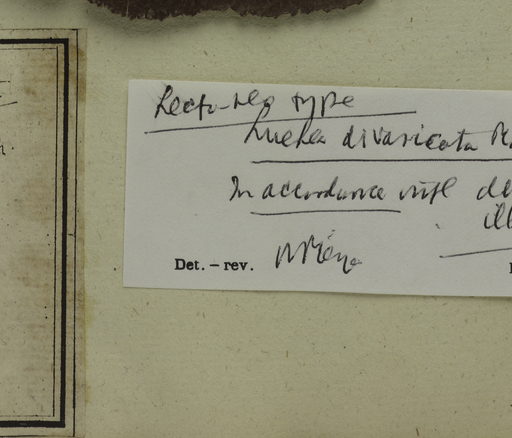 Lecto-neo type
Luehea divaricata
In accordance with de
ill
Det. – rev.